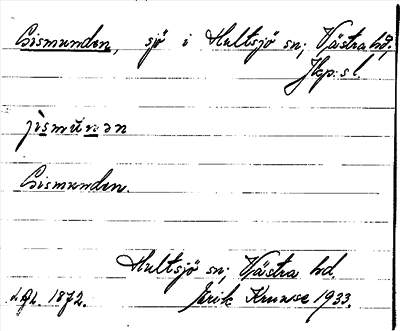 Gismunden, sjö i Hultsjö sn; Västra hd;
Jkp. sl.
jìsmu̇nən
Gismunden.
Hultsjö sn; Västra hd.
Erik Kruuse 1933.
1872.